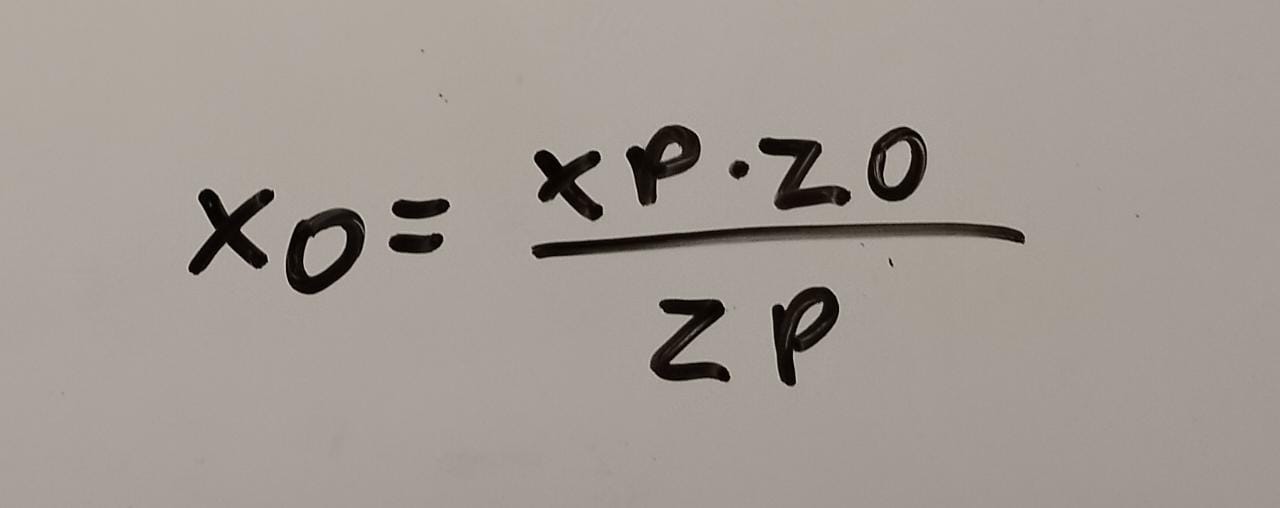 xo = xp · zo / zp